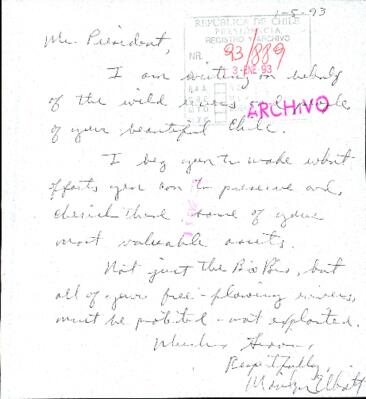 1-5-93
REPUBLICA DE CHILE
PRESIDENCIA
REGISTRO Y ARCHIVO
NR. 93/889
Mr. President,
I am writing on behalf
of the wild rivers and
ARCHIVO
of your beautiful Chile.
I beg you to make what
efforts you can to preserve and
cherish these some of your
most valuable assets.
Not just the Bio Bio, but
all of your free-flowing rivers,
must be protected - not exploited.
Respectfully,
Marilyn